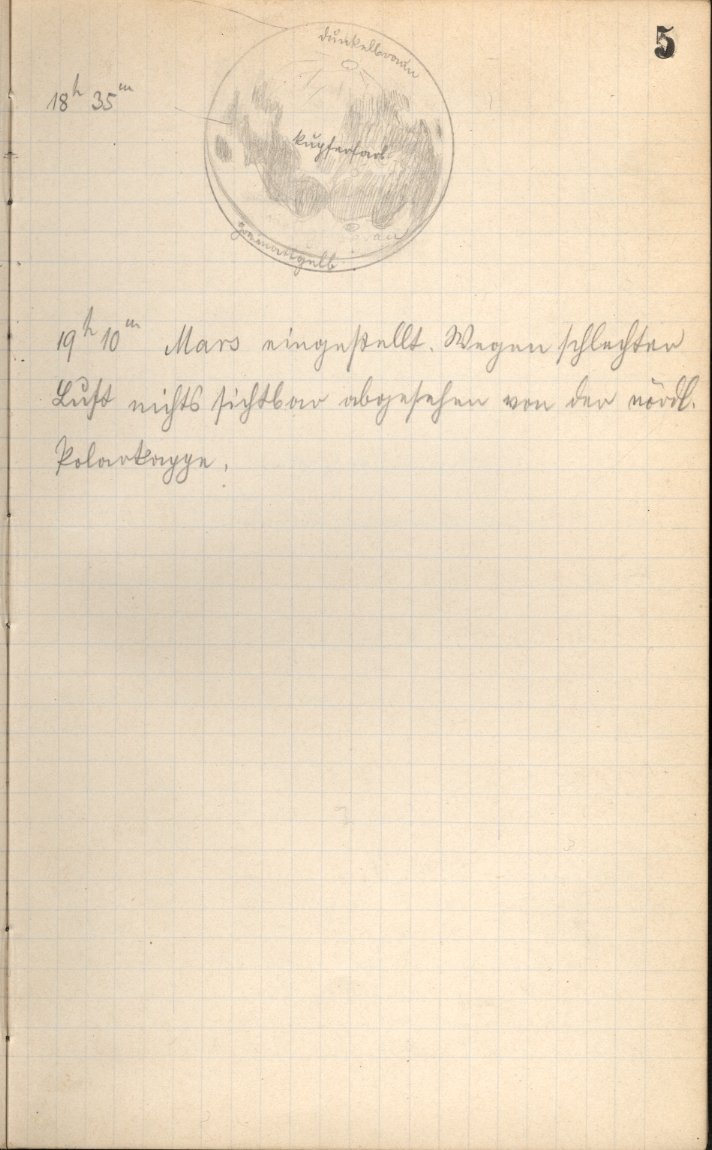 5
dunkelbraun
18h 35m
kupferfarb.
19h 10m Mars eingestellt. Wegen schlechter
Luft nichts sichtbar abgesehen von der nördl.
Polarkappe.